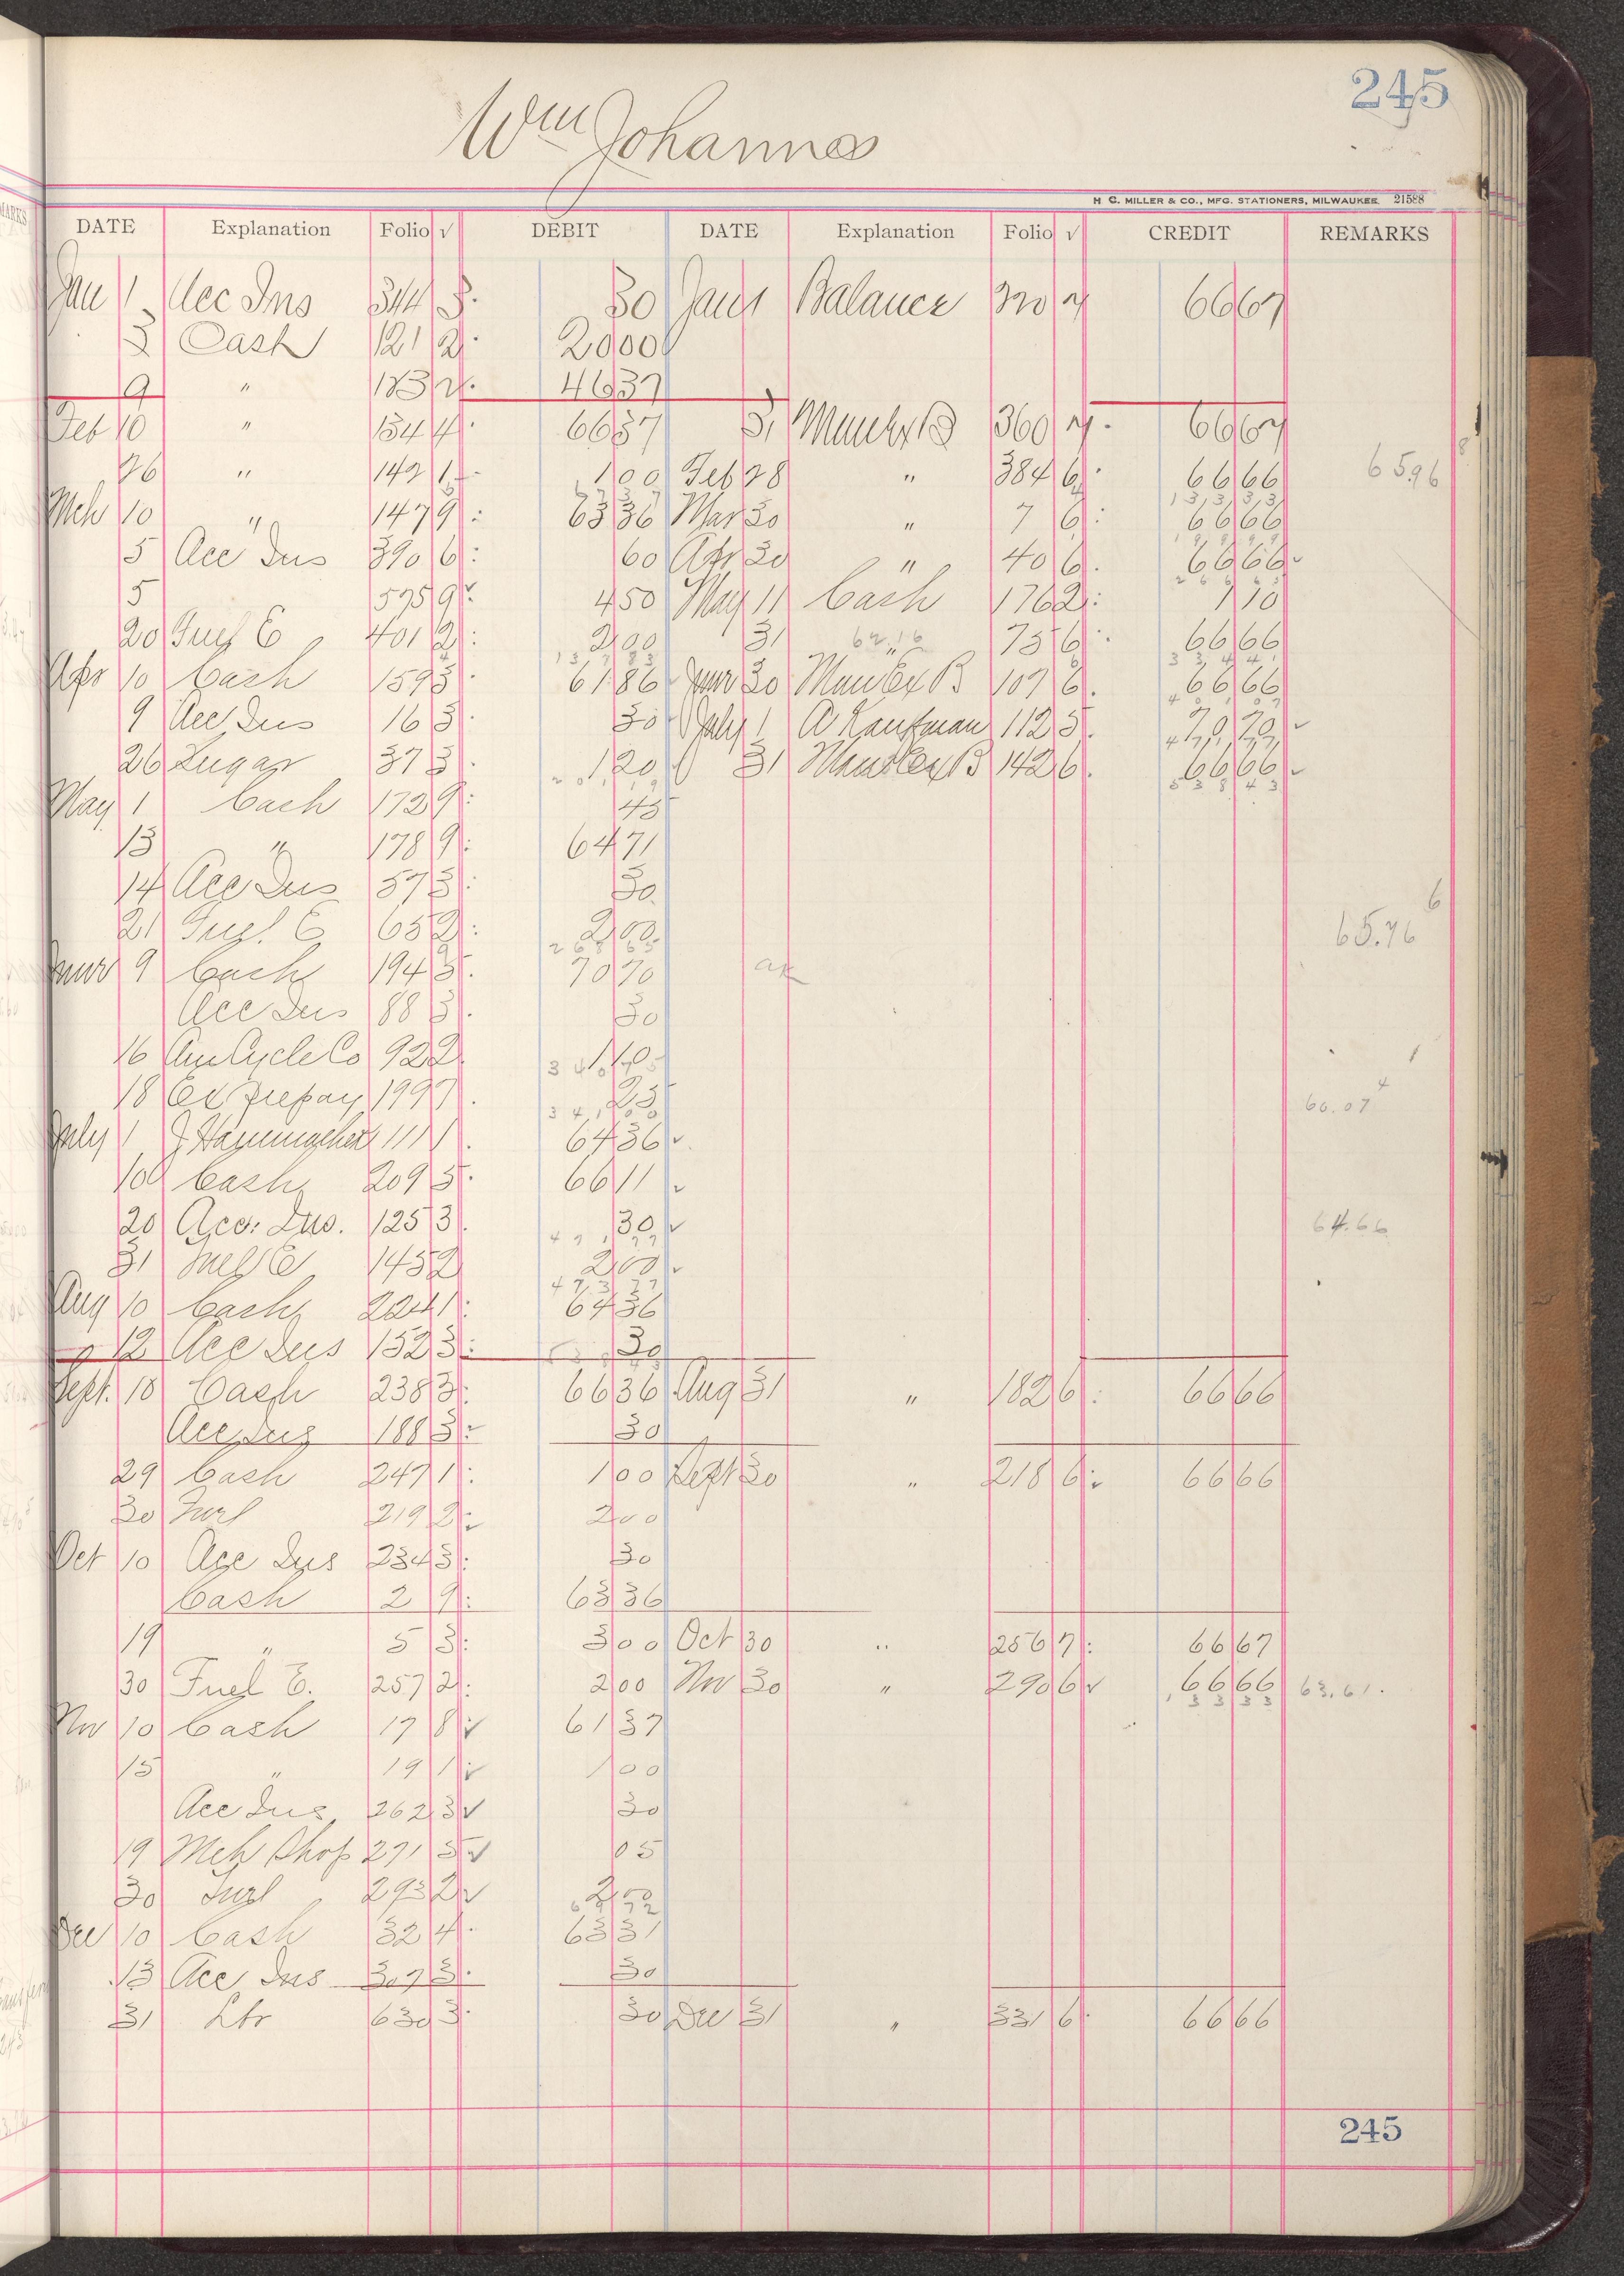 245
Wm Johannes
H. C. MILLER & CO., MFG. STATIONERS, MILWAUKEE. 21588
DATE Explanation Folio √ DEBIT DATE Explanation Folio √ CREDIT REMARKS
Jan 1 Acc Ins 344 3 30 Jan 1 Balance 320 7 66 67
3 Cash 121 2 20 00
9 " 123 2 46 37
Feb 10 " 134 4 66 37 31 Manfex B 360 7 66 67
26 " 142 1 1 00 Feb 28 " 384 6 66 66 65.96
Mch 10 " 147 9 63 36 Mar 30 " 7 6 66 66
5 Acc Ins 390 6 60 Apr 30 " 40 6 66 66
5 575 9 4 50 May 11 Cash 176 2 1 10
20 Fuel E 401 2 2 00 31 " 62.16 75 6 66 66
Apr 10 Cash 159 3 61 86 June 30 Manfex B 107 6 66 66
9 Acc Ins 16 3 30 July 1 A Kaufman 112 5 70 70
26 Sugar 37 3 1 20 31 Manfex B 142 6 66 66
May 1 Cash 172 9 45
13 " 178 9 64 71
14 Acc Ins 57 3 30
21 Fuel E 65 2 2 00 65.76
June 9 Cash 194 3 70 70
Acc Ins 88 3 30
16 Am Cycle Co 92 2 1 10
18 Ex Prepay 199 7 25 66.07
July 1 J Hammacher 111 1 64 36
10 Cash 209 5 66 11
20 Acc. Ins. 125 3 30 64.66
31 Fuel E 145 2 2 00
Aug 10 Cash 224 1 64 36
12 Acc Ins 152 3 30
Sept. 10 Cash 238 3 66 36 Aug 31 " 182 6 66 66
Acc Ins 188 3 30
29 Cash 247 1 1 00 Sept 30 " 218 6 66 66
30 Fuel 219 2 2 00
Oct 10 Acc Ins 234 3 30
Cash 2 9 63 36
19 " 5 3 3 00 Oct 30 " 256 7 66 67
30 Fuel E. 257 2 2 00 Nov 30 " 290 6 66 66 63.61
Nov 10 Cash 17 8 61 37
15 " 19 1 1 00
Acc Ins 262 3 30
19 Mch Shop 271 5 05
30 Fuel 293 2 2 00
Dec 10 Cash 32 4 63 31
13 Acc Ins 307 3 30
31 Ltr 630 3 30 Dec 31 " 331 6 66 66
245